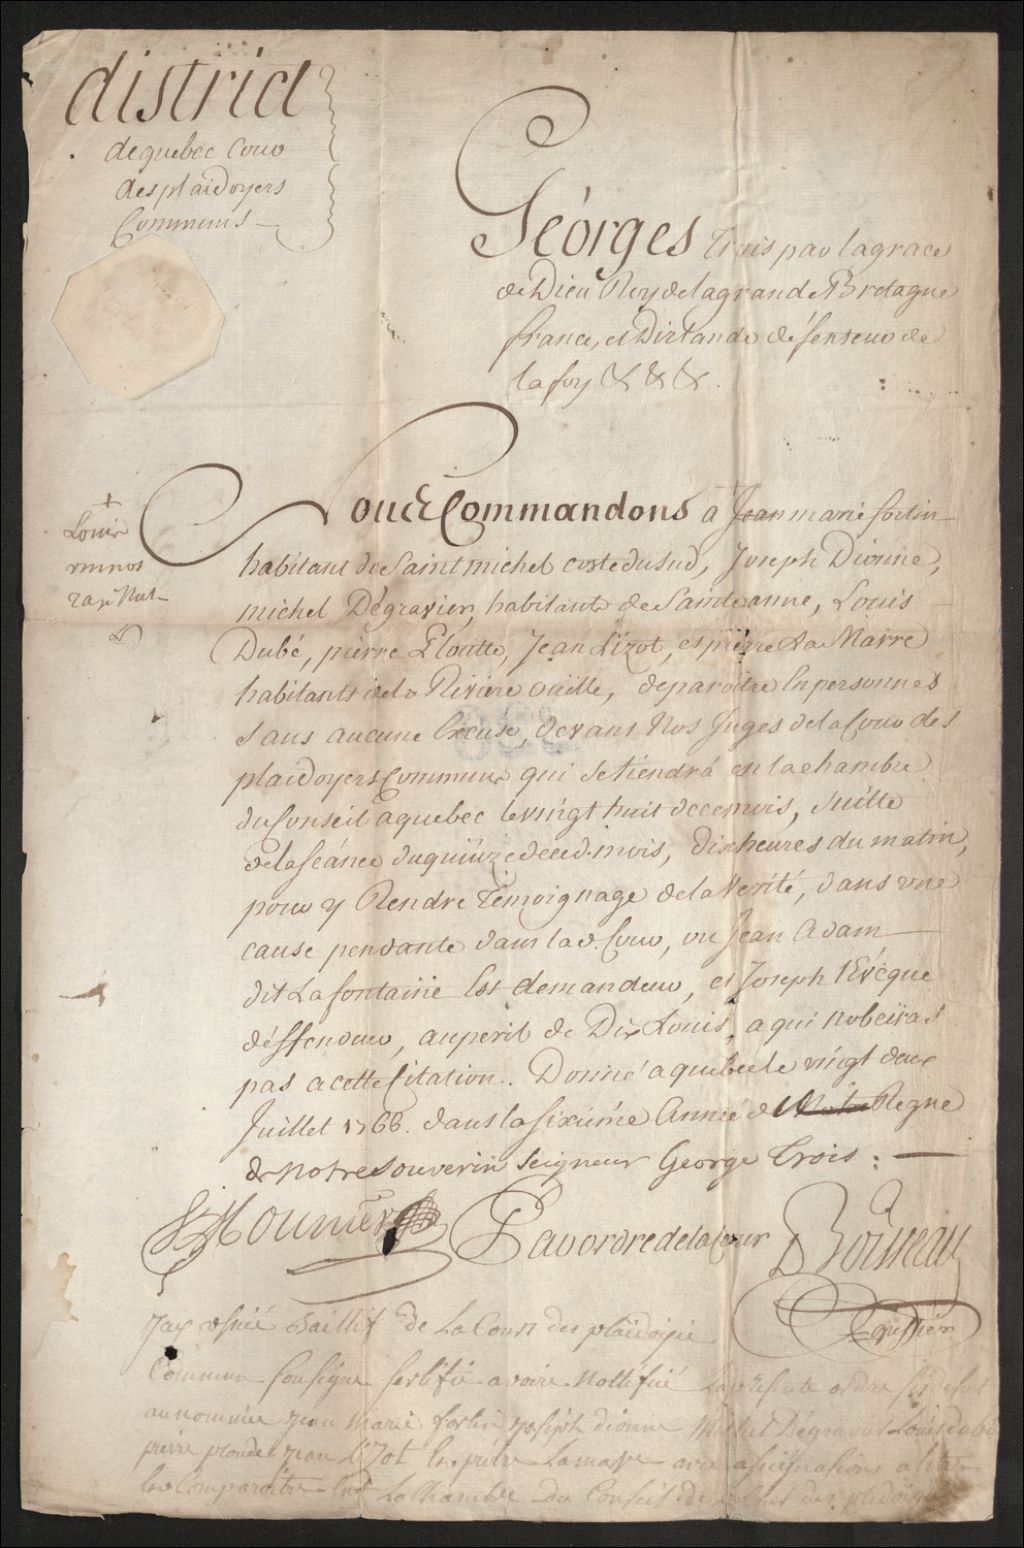 district
de quebec Cour
des plaidoyers
Communs
Géorges Trois par la grace
de Dieu Roy de la grande Bretagne
france, et Dirlande défenseur de
la foy & & &.
Nous Commandons à Jean marie fortin
habitant de Saint michel coste du sud, Joseph Dionne,
michel Dégravier, habitants de Sainte anne, Louis
Dubé, pierre Ploutte, Jean Lizot, et pierre La Marre
habitants de la Riviere ouëlle, de paroitre En personnes
Sans aucune Excuse, devant Nos Juges de la Cour des
plaidoyers Communs qui se tiéndrá en la chambre
du Conseil a quebec le vingt huit de ce mois, Suitte
de la séance du quinze de ce d. mois, dix heures du matin,
pour y Rendre témoignage de la Verité, dans une
cause pendante dans la d. Cour, ou Jean Adam
dit Lafontaine Est demandeur, et Joseph l'Evéque
déffendeur, au peril de Dix Louis, a qui n'obeiras
pas a cette Citation. Donné a quebec le vingt deux
Juillet 1766. dans la sixiéme Année de Regne
de Notre Souverin Seigneur George Trois :
+
Louis
Mounier
Par ordre de la Cour
D Boisseau
Greffier
Baillif de La Cour des plaidoyié
Commun Sousigne Sertifié avoire Nottéfiié La présente ordre
au nommée Jean Marie fortin Joseph dionne Michel Dégravar Louis dubé
pierre ploude Jean L'Zot En pierre Lamare avec assignasions a
En Comparoitre La Chambre du Conseil de